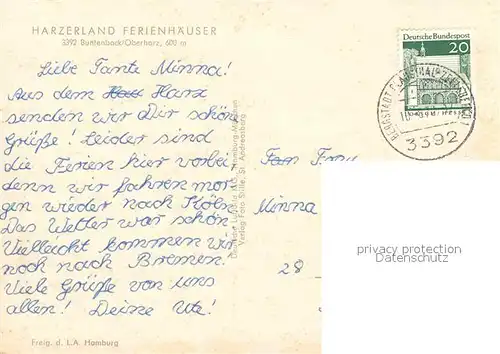 HARZERLAND FERIENHÄUSER
3392 Buntenbock/Oberharz, 600 m
Liebe Tante Minna!
Aus dem Harz
senden wir Dir schöne
Grüße! Leider sind
die Ferien hier vorbei
denn wir fahren mor-
gen wieder nach Köln.
Das Wetter war schön.
Vielleicht kommen wir
noch nach Bremen.
Viele Grüße von uns
allen! Deine Ute!
Freig. d. L.A. Hamburg
Verlag Foto Stille, St. Andreasberg
Deutsche Bundespost
20
3392
Frau
Minna
28
privacy protection
Datenschutz